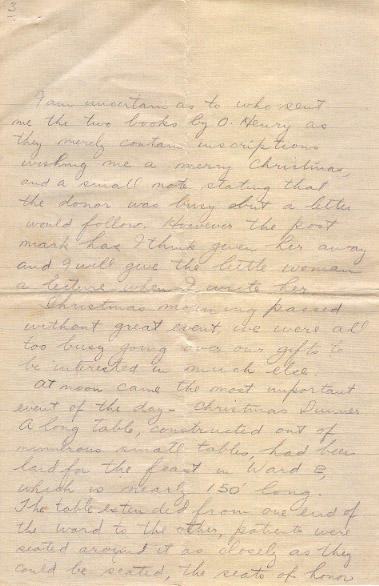 3
I am uncertain as to who sent
me the two books by O. Henry as
they merely contain inscriptions
wishing me a merry Christmas,
and a small note stating that
the donor was busy but a letter
would follow. However the post
mark has I think given her away
and I will give the little woman
a lecture when I write her.
Christmas morning passed
without great event we were all
too busy going over our gifts to
be interested in much else.
At noon came the most important
event of the day - Christmas Dinner
A long table, constructed out of
numerous small tables, had been
laid for the feast in Ward E,
which is nearly 150' long.
The table extended from one end of
the ward to the other, patients were
seated around it as closely as they
could be seated, the seats of honor